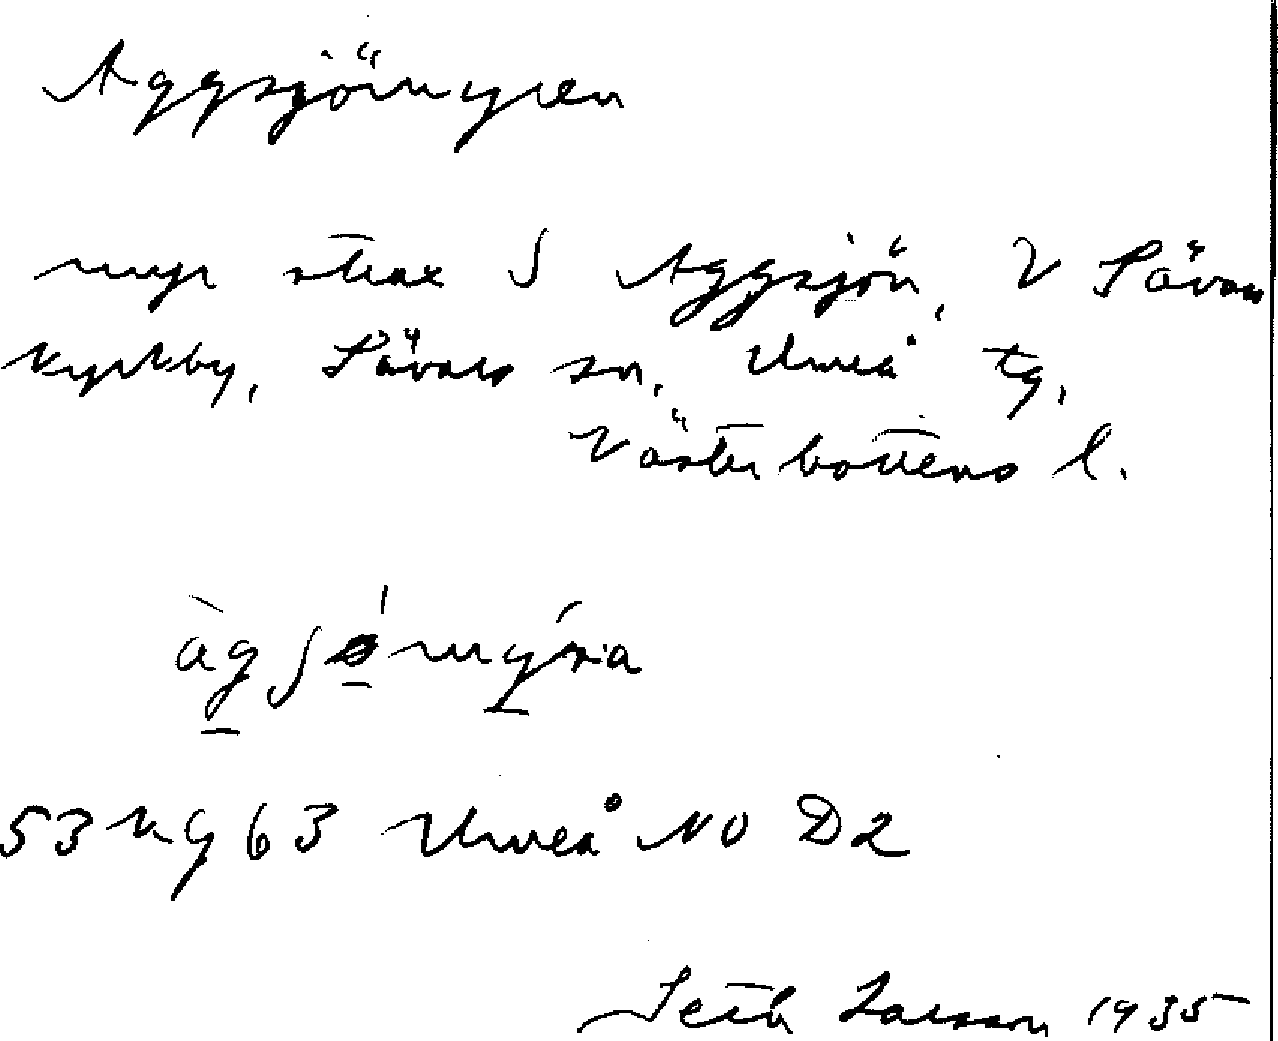 Aggsjömyren
myr strax S Aggsjön, V Sävars
kyrkby, Sävars sn, Umeå tg,
Västerbottens l.
àgʃømýra
53 kg 63 Umeå NO D2
Seth Larsson 1935